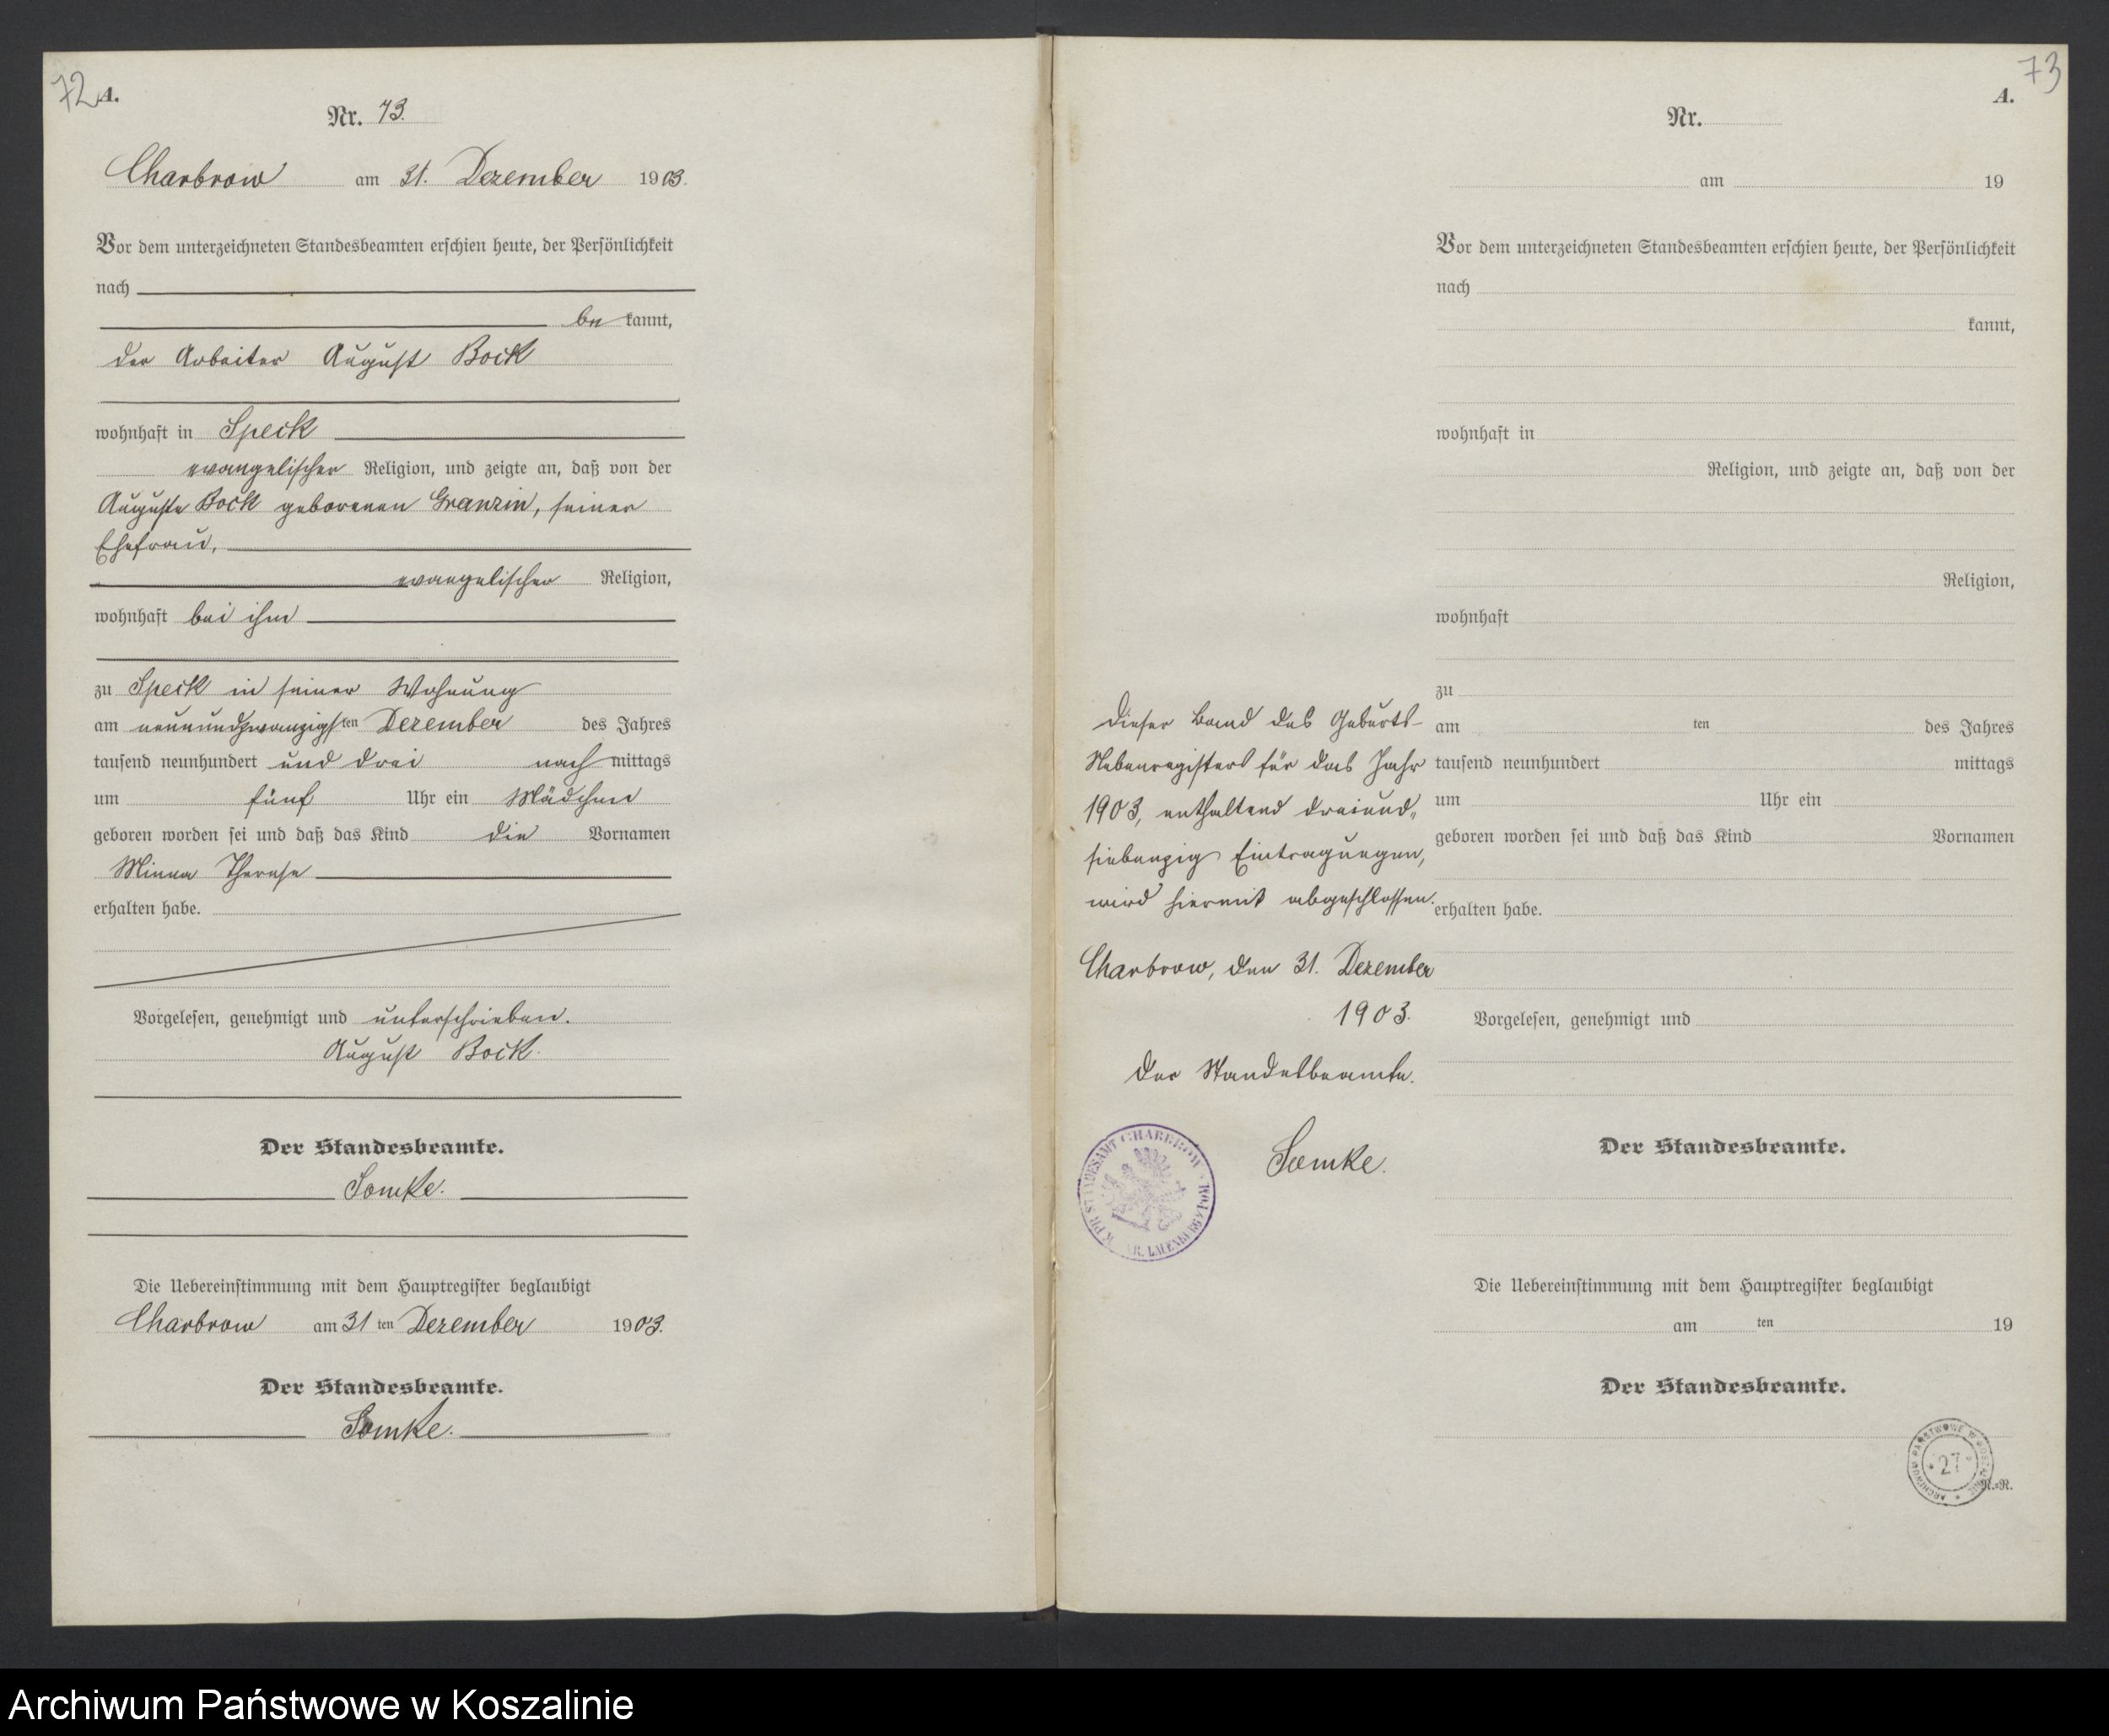 72 A.
Nr. 73.
Charbrow am 31. Dezember 1903.
Vor dem unterzeichneten Standesbeamten erschien heute, der Persönlichkeit
nach
be kannt,
der Arbeiter August Bock
wohnhaft in Speck
evangelischer Religion, und zeigte an, daß von der
Auguste Bock geborenen Granzin, seiner
Ehefrau,
evangelischer Religion,
wohnhaft bei ihm
zu Speck in seiner Wohnung
am neunundzwanzigsten Dezember des Jahres
tausend neunhundert und drei nachmittags
um fünf Uhr ein Mädchen
geboren worden sei und daß das Kind die Vornamen
Minna Therese
erhalten habe.
Vorgelesen, genehmigt und unterschrieben.
August Bock.
Der Standesbeamte.
Somke.
Die Uebereinstimmung mit dem Hauptregister beglaubigt
Charbrow am 31 ten Dezember 1903.
Der Standesbeamte.
Somke.
73
A.
Nr.
am 19
Vor dem unterzeichneten Standesbeamten erschien heute, der Persönlichkeit
nach
kannt,
wohnhaft in
Religion, und zeigte an, daß von der
Religion,
wohnhaft
zu
am ten des Jahres
tausend neunhundert mittags
um Uhr ein
geboren worden sei und daß das Kind Vornamen
erhalten habe.
Vorgelesen, genehmigt und
Der Standesbeamte.
Die Uebereinstimmung mit dem Hauptregister beglaubigt
am ten 19
Der Standesbeamte.
N.=R.
Dieser Band des Geburts-
Nebenregisters für das Jahr
1903, enthaltend dreiund„
siebenzig Eintragungen,
wird hiermit abgeschlossen.
Charbrow, den 31. Dezember
1903.
Der Standesbeamte.
Somke.
K. PR. STANDESAMT CHARBROW
KR. LAUENBURG
ARCHIWUM PAŃSTWOWE W KOSZALINIE
27
Archiwum Państwowe w Koszalinie